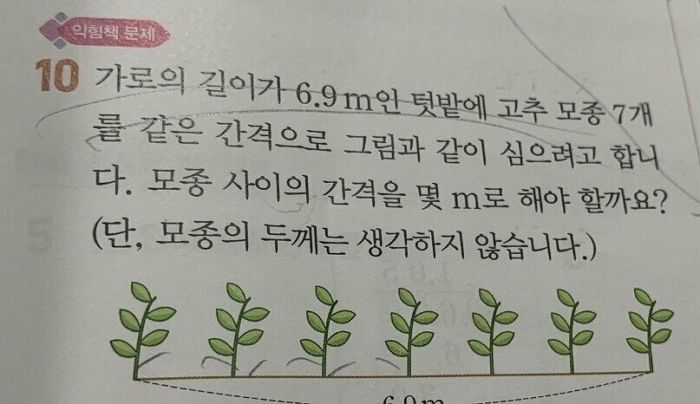 익힘책 문제
10 가로의 길이가 6.9 m인 텃밭에 고추 모종 7개
를 같은 간격으로 그림과 같이 심으려고 합니
다. 모종 사이의 간격을 몇 m로 해야 할까요?
(단, 모종의 두께는 생각하지 않습니다.)
6.9 m